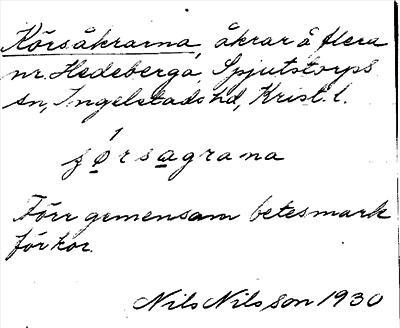 Körsåkrarna, åkrar å flera
nr. Hedeberga, Spjutstorps
sn, Ingelstads hd, Krist. l.
fø´rsagrana
Förr gemensam betesmark
för kor.
Nils Nilsson 1930